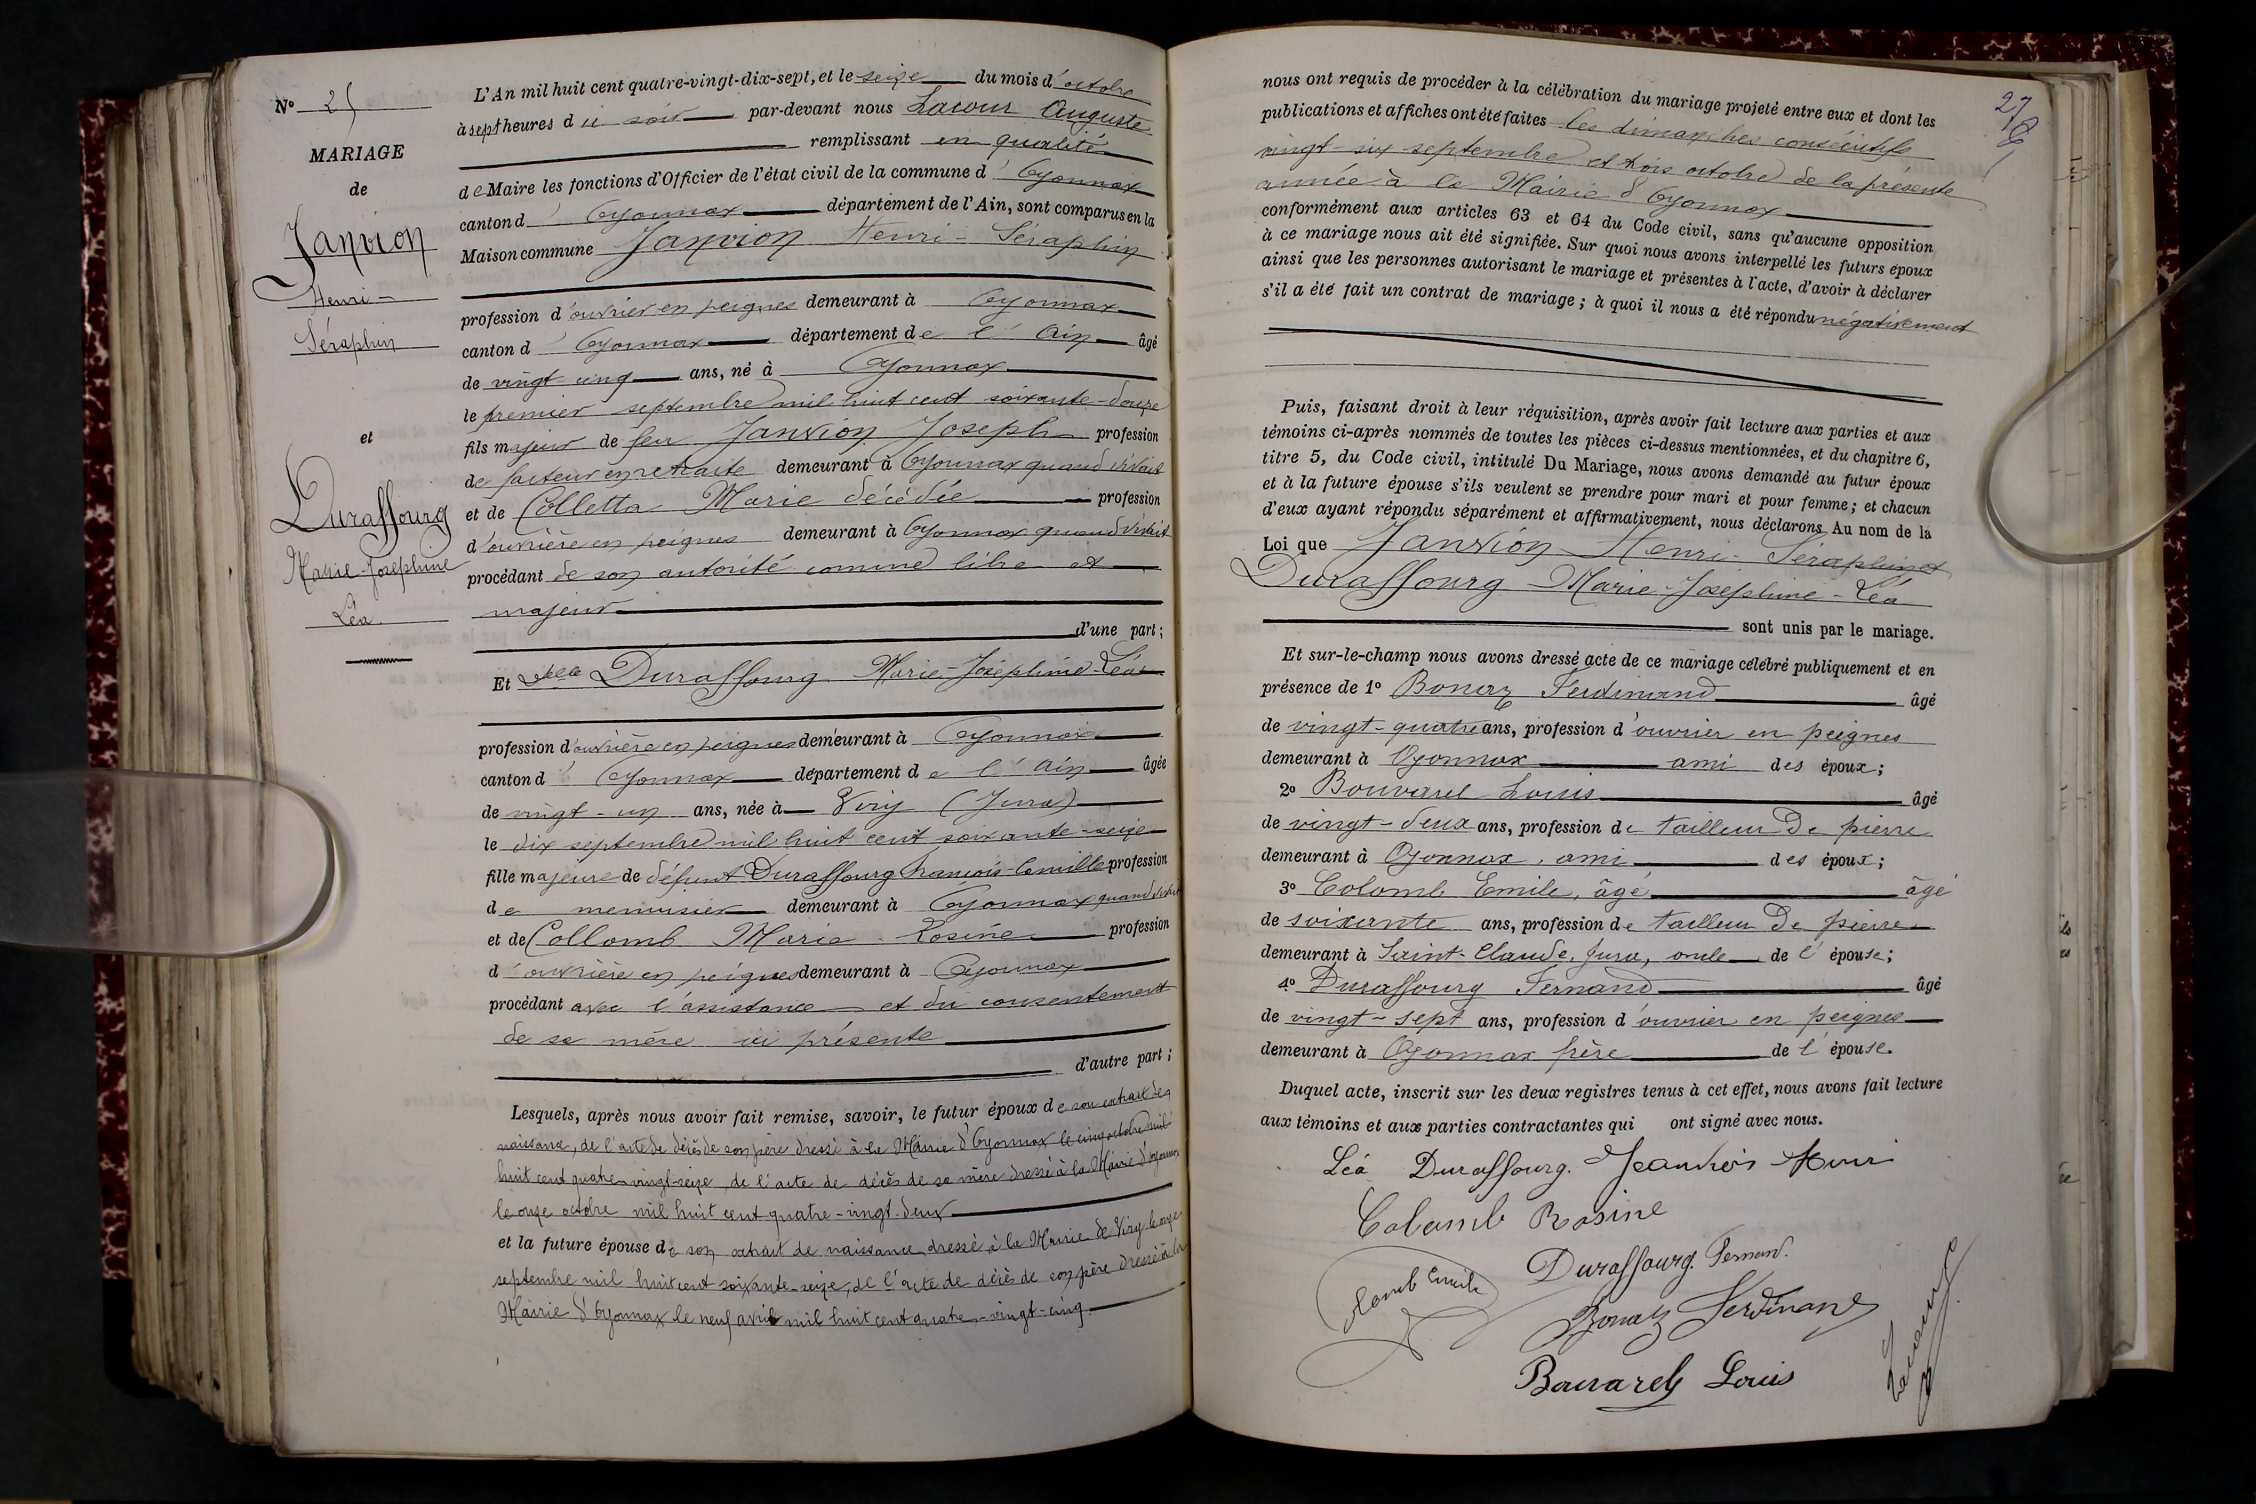 N° 25
MARIAGE
de
Janvion
Henri-
Séraphin
et
Duraffourg
Marie-Joséphine
Léa
L'An mil huit cent quatre-vingt-dix-sept, et le seize du mois d'octobre
à sept heures du soir par-devant nous Lacour Auguste
remplissant en qualité
de Maire les fonctions d'Officier de l'état civil de la commune d'Oyonnax
canton d'Oyonnax département de l'Ain, sont comparus en la
Maison commune Janvion Henri-Séraphin
profession d'ouvrier en peignes demeurant à Oyonnax
canton d'Oyonnax département de l'Ain âgé
de vingt cinq ans, né à Oyonnax
le premier septembre mil huit cent soixante-douze
fils majeur de feu Janvion Joseph profession
de facteur en retraite demeurant à Oyonnax quand vivait
et de Colletta Marie décédée profession
d'ouvrière en peignes demeurant à Oyonnax quand vivait
procédant de son autorité comme libre et
majeur
d'une part;
Et Delle Duraffourg Marie-Joséphine-Léa
profession d'ouvrière en peignes demeurant à Oyonnax
canton d'Oyonnax département de l'Ain âgée
de vingt-un ans, née à Viry (Jura)
le dix septembre mil huit cent soixante-seize
fille majeure de défunt Duraffourg François-Camille profession
de menuisier demeurant à Oyonnax quand vivait
et de Collomb Marie-Rosine profession
d'ouvrière en peignes demeurant à Oyonnax
procédant avec l'assistance et du consentement
de sa mère ici présente
d'autre part;
Lesquels, après nous avoir fait remise, savoir, le futur époux de son extrait de
naissance, de l'acte de décès de son père dressé à la Mairie d'Oyonnax le cinq octobre mil
huit cent quatre-vingt-seize, de l'acte de décès de sa mère dressé à la Mairie d'Oyonnax
le onze octobre mil huit cent quatre-vingt-deux
et la future épouse de son extrait de naissance dressé à la Mairie de Viry le onze
septembre mil huit cent soixante-seize, de l'acte de décès de son père dressé à la
Mairie d'Oyonnax le neuf avril mil huit cent quatre-vingt-cinq.
27
nous ont requis de procéder à la célébration du mariage projeté entre eux et dont les
publications et affiches ont été faites les dimanches consécutifs
vingt-six septembre et trois octobre de la présente
année à la Mairie d'Oyonnax
conformément aux articles 63 et 64 du Code civil, sans qu'aucune opposition
à ce mariage nous ait été signifiée. Sur quoi nous avons interpellé les futurs époux
ainsi que les personnes autorisant le mariage et présentes à l'acte, d'avoir à déclarer
s'il a été fait un contrat de mariage; à quoi il nous a été répondu négativement
Puis, faisant droit à leur réquisition, après avoir fait lecture aux parties et aux
témoins ci-après nommés de toutes les pièces ci-dessus mentionnées, et du chapitre 6,
titre 5, du Code civil, intitulé Du Mariage, nous avons demandé au futur époux
et à la future épouse s'ils veulent se prendre pour mari et pour femme; et chacun
d'eux ayant répondu séparément et affirmativement, nous déclarons Au nom de la
Loi que Janvion Henri-Séraphin et
Duraffourg Marie-Joséphine-Léa
sont unis par le mariage.
Et sur-le-champ nous avons dressé acte de ce mariage célébré publiquement et en
présence de 1° Bonaz Ferdinand âgé
de vingt-quatre ans, profession d'ouvrier en peignes
demeurant à Oyonnax ami des époux;
2° Bouvard Louis âgé
de vingt-deux ans, profession de tailleur de pierre
demeurant à Oyonnax, ami des époux;
3° Colomb Emile, âgé âgé
de soixante ans, profession de tailleur de pierre
demeurant à Saint-Claude, Jura, oncle de l'épouse;
4° Duraffourg Fernand âgé
de vingt-sept ans, profession d'ouvrier en peignes
demeurant à Oyonnax frère de l'épouse.
Duquel acte, inscrit sur les deux registres tenus à cet effet, nous avons fait lecture
aux témoins et aux parties contractantes qui ont signé avec nous.
Léa Duraffourg.
Colamb Rosine
Duraffourg Fernand.
Emile
Bonaz Ferdinand
Louis
Lacour